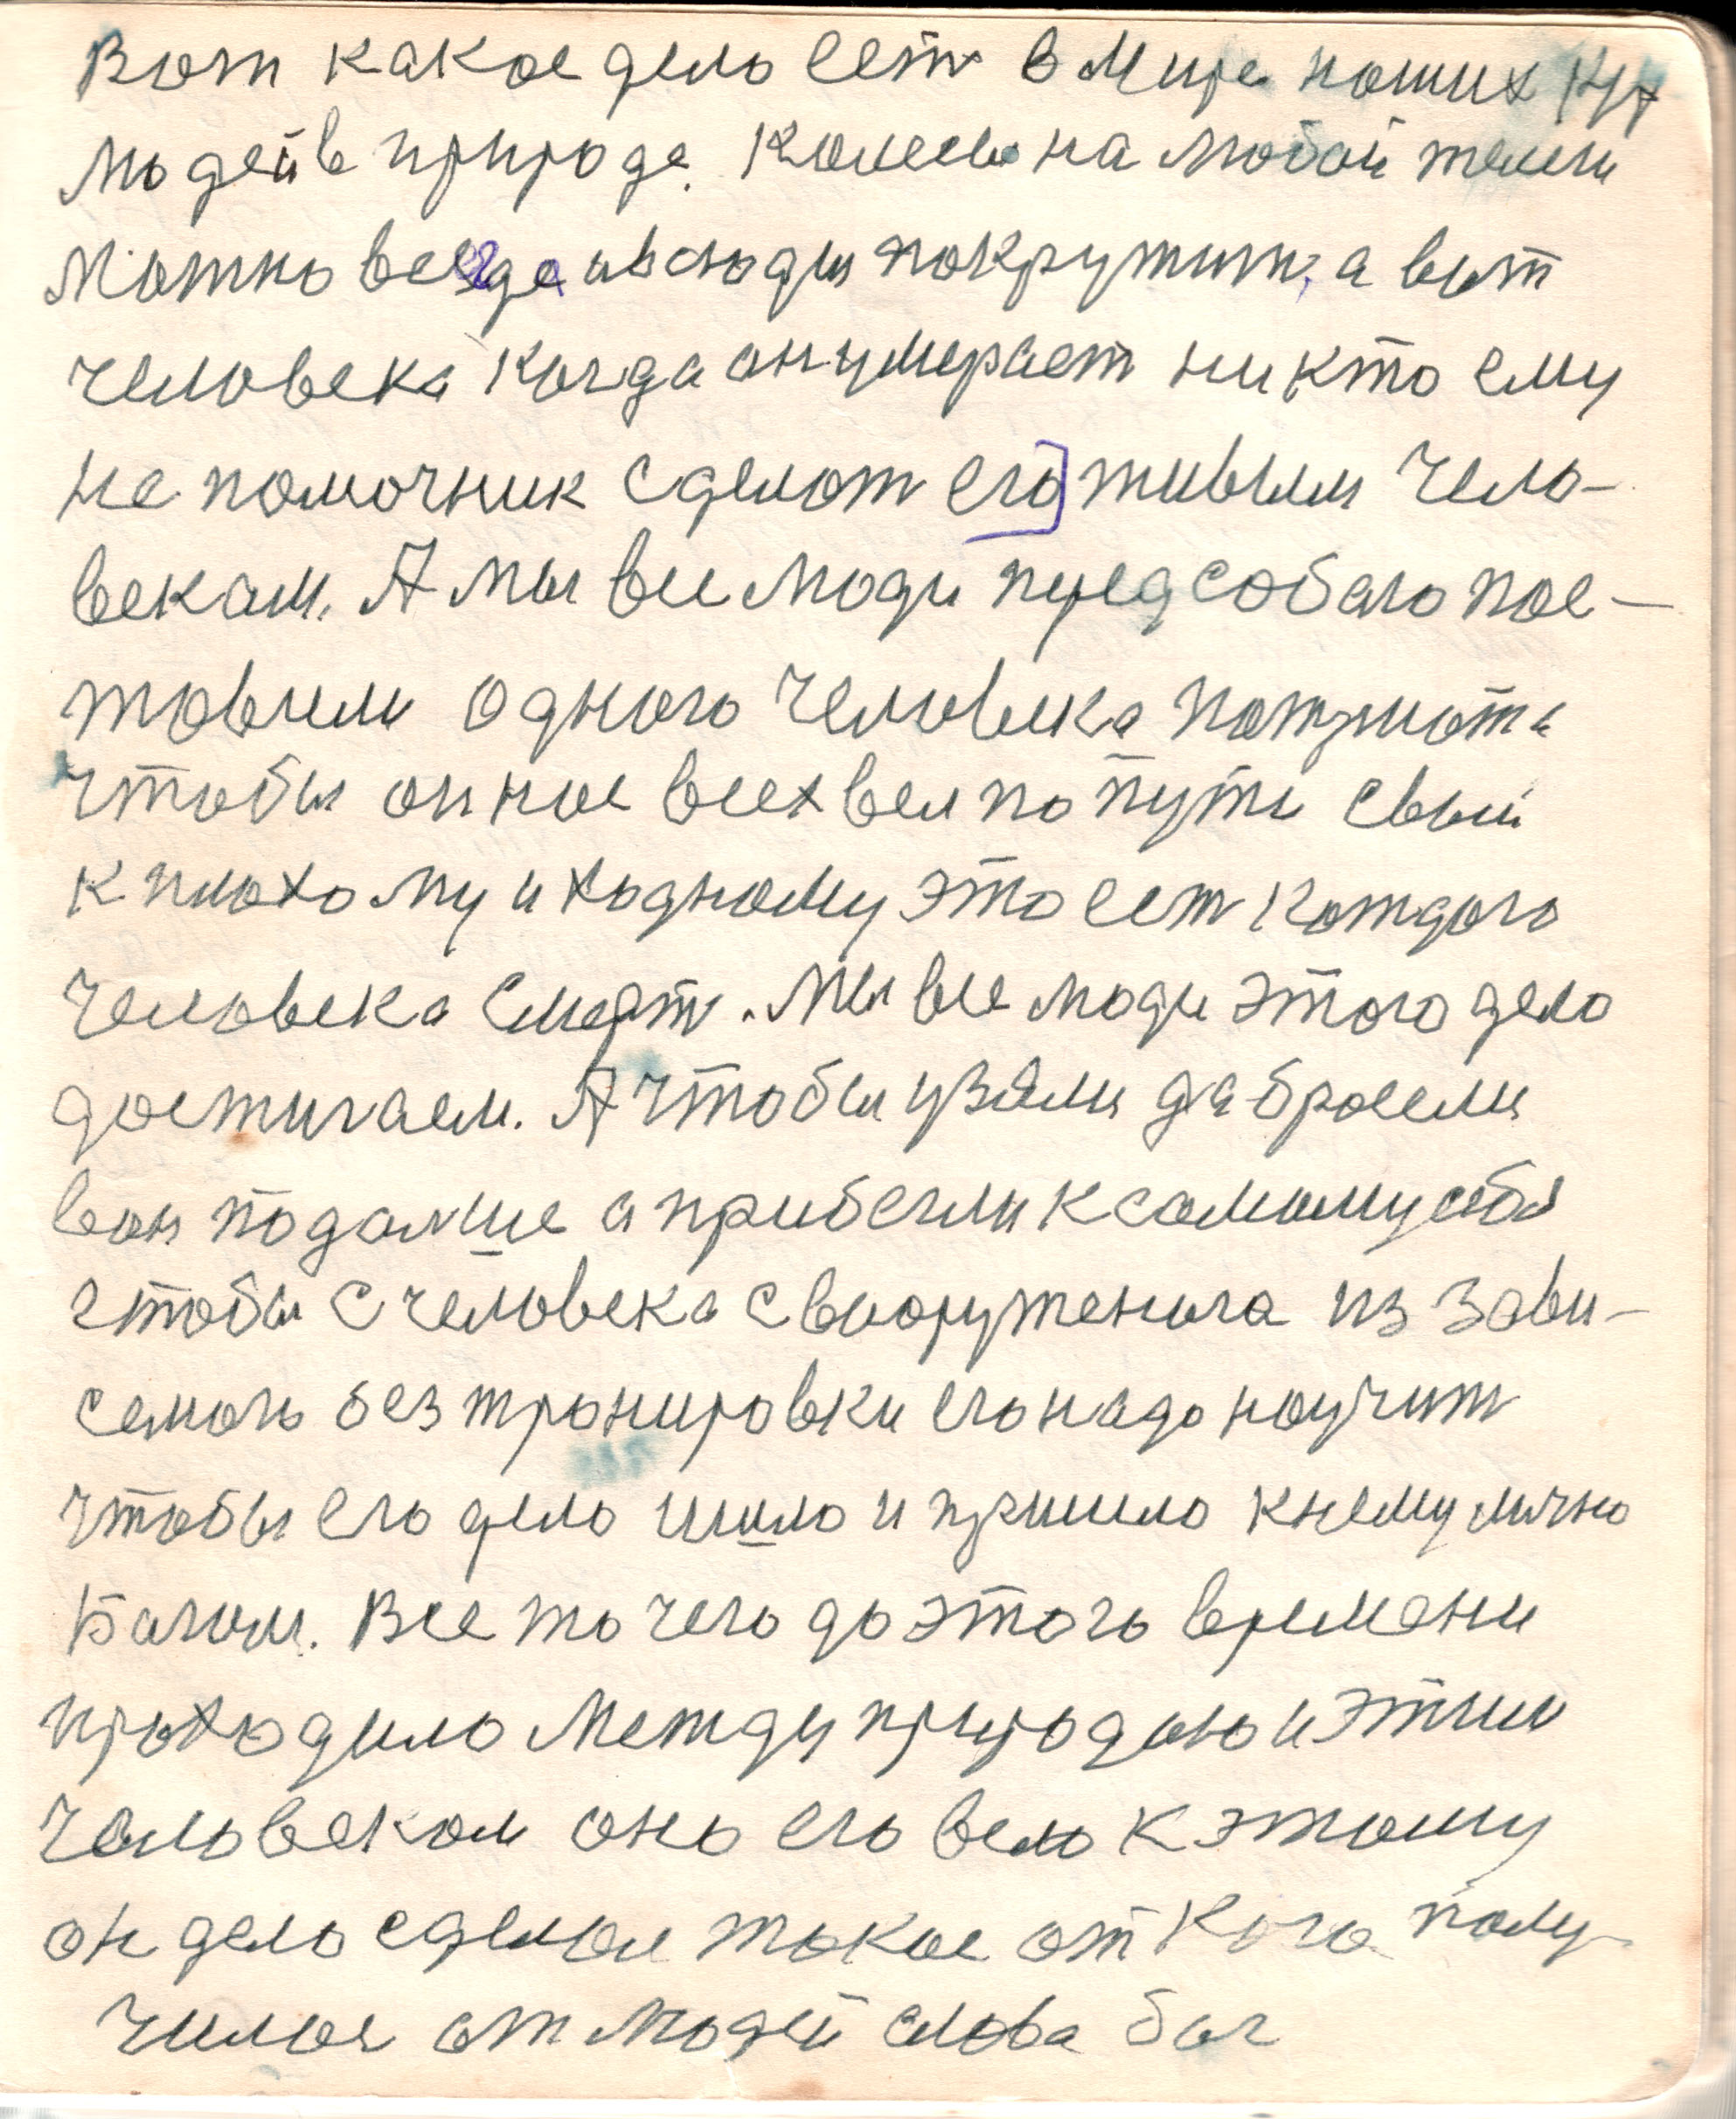 Вот какое дело есть в мире наших
людей в природе. Колесо на любой телеги
можно всегда и всюды покружит, а вот
человека когда он умирает никто ему
не помочник сделат его живым чело-
векам. А мы все люди пред собаю пос-
тавили одного человека
чтобы он нас всех вел по пути свой
к плохому и ходному это ест каждого
человека смерт. Мы все люди этого дела
достигаем. А чтобы узяли да бросели
вон подальше а прибегли к самому себя
чтобы с человека с вооруженига из зави-
семогь без тронировки его надо научит
чтобы его дело шило и пришло к нему лично
Багом. Все то чего до этого времени
проходило между природою и этим
человеком оно его вело к этому
он дело сделал такое от кога полу-
чилос от людей слова баг